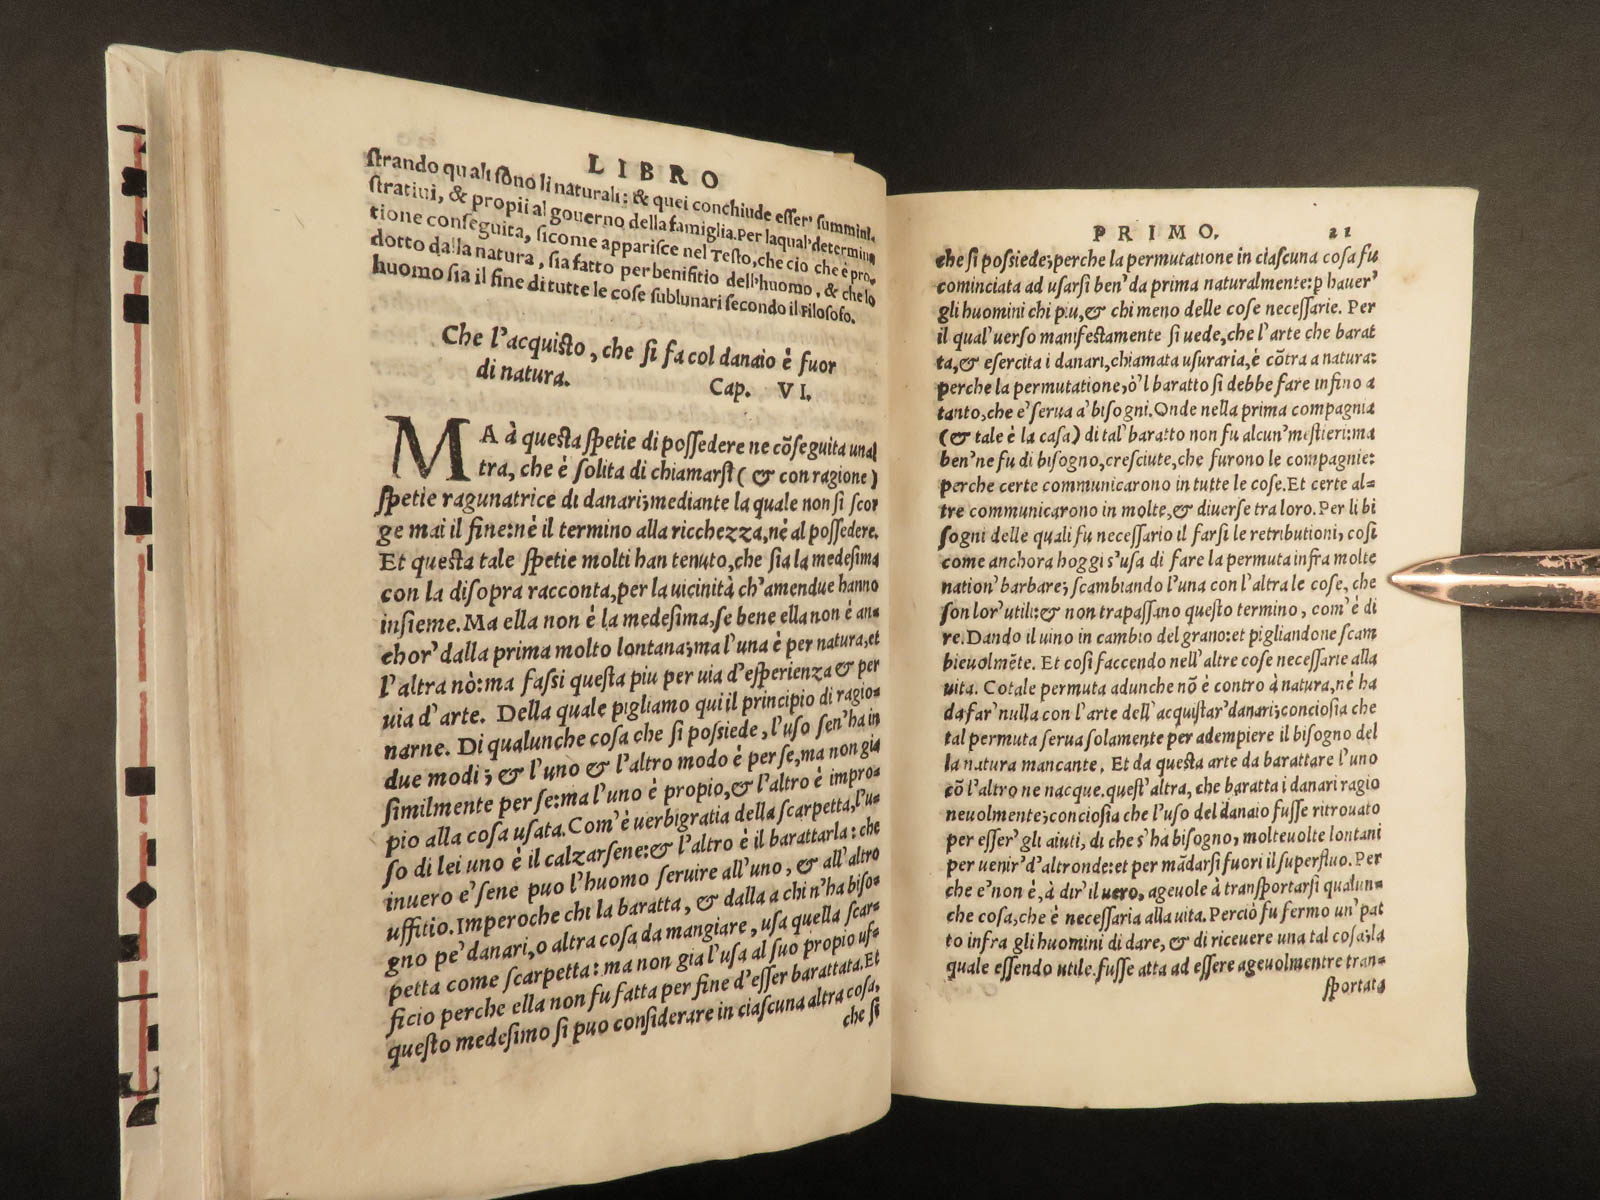 LIBRO
ſtrando quali ſono li naturali: & quei conchiude eſſer' ſummini-
ſtratiui, & propii al gouerno della famiglia. Per laqual' determina
tione conſeguita, ſicome appariſce nel Teſto, che cio che è pro-
dotto dalla natura, ſia fatto per benifitio dell'huomo, & che lo
huomo ſia il fine di tutte le coſe ſublunari ſecondo il Filoſofo.
Che l'acquiſto, che ſi fa col danaio è fuor
di natura. Cap. VI.
MA à queſta ſpetie di poſſedere ne cõſeguita unal
tra, che è ſolita di chiamarſi (& con ragione)
ſpetie ragunatrice di danari; mediante la quale non ſi ſcor
ge mai il fine: nè il termino alla ricchezza, nè al poſſedere.
Et queſta tale ſpetie molti han tenuto, che ſia la medeſima
con la diſopra racconta, per la uicinità ch'amendue hanno
inſieme. Ma ella non è la medeſima, ſe bene ella non è an-
chor' dalla prima molto lontana; ma l'una è per natura, et
l'altra nò: ma faſſi queſta piu per uia d'eſperienza & per
uia d'arte. Della quale pigliamo qui il principio di ragio-
narne. Di qualunche coſa che ſi poſſiede, l'uſo ſen'ha in
due modi; & l'uno & l'altro modo è per ſe, ma non gia
ſimilmente per ſe: ma l'uno è propio, & l'altro è impro-
pio alla coſa uſata. Com'è uerbigratia della ſcarpetta, l'u-
ſo di lei uno è il calzarſene: & l'altro è il barattarla: che
inuero e'ſene puo l'huomo ſeruire all'uno, & all'altro
uffitio. Imperoche chi la baratta, & dalla a chi n'ha biſo-
gno pe' danari, o altra coſa da mangiare, uſa quella ſcar-
petta come ſcarpetta: ma non gia l'uſa al ſuo propio uf-
ficio perche ella non fu fatta per fine d'eſſer barattata. Et
queſto medeſimo ſi puo conſiderare in ciaſcuna altra coſa,
che ſi
PRIMO. 21
che ſi poſſiede; perche la permutatione in ciaſcuna coſa fu
cominciata ad uſarſi ben' da prima naturalmente: p hauer'
gli huomini chi piu, & chi meno delle coſe neceſſarie. Per
il qual' uerſo manifeſtamente ſi uede, che l'arte che barat
ta, & eſercita i danari, chiamata uſuraria, è cõtra a natura:
perche la permutatione, ò'l baratto ſi debbe fare infino a
tanto, che e' ſerua a' biſogni. Onde nella prima compagnia
(& tale è la caſa) di tal' baratto non fu alcun' meſtieri: ma
ben' ne fu di biſogno, creſciute, che furono le compagnie:
perche certe communicarono in tutte le coſe. Et certe al-
tre communicarono in molte, & diuerſe tra loro. Per li bi
ſogni delle quali fu neceſſario il farſi le retributioni, coſi
come anchora hoggi s'uſa di fare la permuta infra molte
nation' barbare; ſcambiando l'una con l'altra le coſe, che
ſon lor' utili: & non trapaſſano queſto termino, com'è di
re. Dando il uino in cambio del grano: et pigliandone ſcam
bieuolmẽte. Et coſi faccendo nell'altre coſe neceſſarie alla
uita. Cotale permuta adunche nõ è contro à natura, nè ha
da far' nulla con l'arte dell'acquiſtar' danari; concioſia che
tal permuta ſerua ſolamente per adempiere il biſogno del
la natura mancante. Et da queſta arte da barattare l'uno
cõ l'altro ne nacque. queſt'altra, che baratta i danari ragio
neuolmente; concioſia che l'uſo del danaio fuſſe ritrouato
per eſſer' gli aiuti, di che s'ha biſogno, molteuolte lontani
per uenir' d'altronde: et per mãdarſi fuori il ſuperfluo. Per
che e' non è, à dir' il uero, ageuole à tranſportarſi qualun-
che coſa, che è neceſſaria alla uita. Perciò fu fermo un' pat
to infra gli huomini di dare, & di riceuere una tal coſa; la
quale eſſendo utile. fuſſe atta ad eſſere ageuolmentre tran-
ſportata